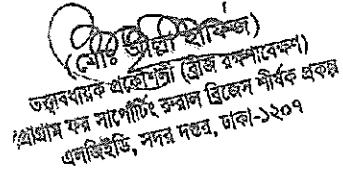 (মোঃ আল্লা হাফিজ)
তত্ত্বাবধায়ক প্রকৌশলী (ব্রীজ রক্ষণাবেক্ষণ)
প্রোগ্রাম ফর সাপোর্টিং রুরাল ব্রিজেস শীর্ষক প্রকল্প
এলজিইডি, সদর দপ্তর, ঢাকা-১২০৭